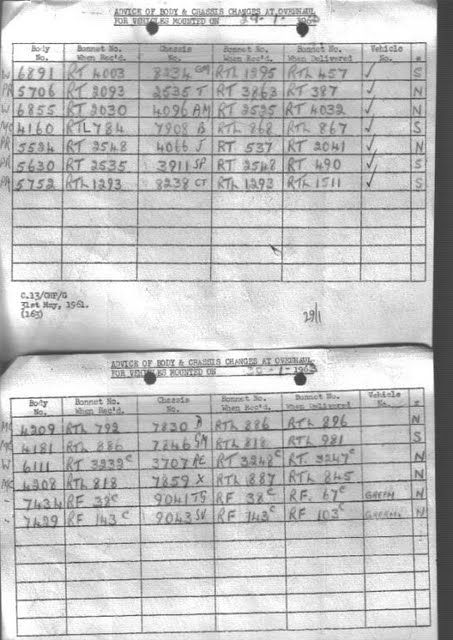 ADVICE OF BODY & CHASSIS CHANGES AT OVERHAUL
FOR VEHICLES MOUNTED ON 29-1-1963
Body No. Bonnet No. When Rec'd. Chassis No. Bonnet No. When Rec'd. Bonnet No. When Delivered Vehicle No.
W 6891 RT 4003 8234 GM RTL 1295 RTL 457 ✓ S
PR 5706 RT 2093 2535 T RT 3863 RT 387 ✓ N
W 6855 RT 2030 4096 AM RT 2525 RT 4032 ✓ N
MC 4160 RTL 784 7908 B RTL 868 RTL 867 ✓ S
PR 5524 RT 2548 4066 J RT 537 RT 2041 ✓ N
PR 5630 RT 2535 3911 SP RT 2548 RT 490 ✓ S
PR 5752 RTL 1293 8238 CT RTL 1293 RTL 1511 ✓ S
C.13/CHP/G
31st May, 1961.
(163)
29/1
ADVICE OF BODY & CHASSIS CHANGES AT OVERHAUL
FOR VEHICLES MOUNTED ON -1-1963
Body No. Bonnet No. When Rec'd. Chassis No. Bonnet No. When Rec'd. Bonnet No. When Delivered Vehicle No.
MC 4209 RTL 792 7830 RTL 886 RTL 896 N
MC 4181 RTL 886 7846 GM RTL 818 RTL 981 S
W 6111 RT 3232c 3707 AE RT 3248c RT 3247c N
MC 4208 RTL 818 7859 X RTL 887 RTL 845 N
7434 RF 38c 9041 TG RF 38c RF 67c GREEN N
7429 RF 143c 9043 SV RF 143c RF 103c GREEN N